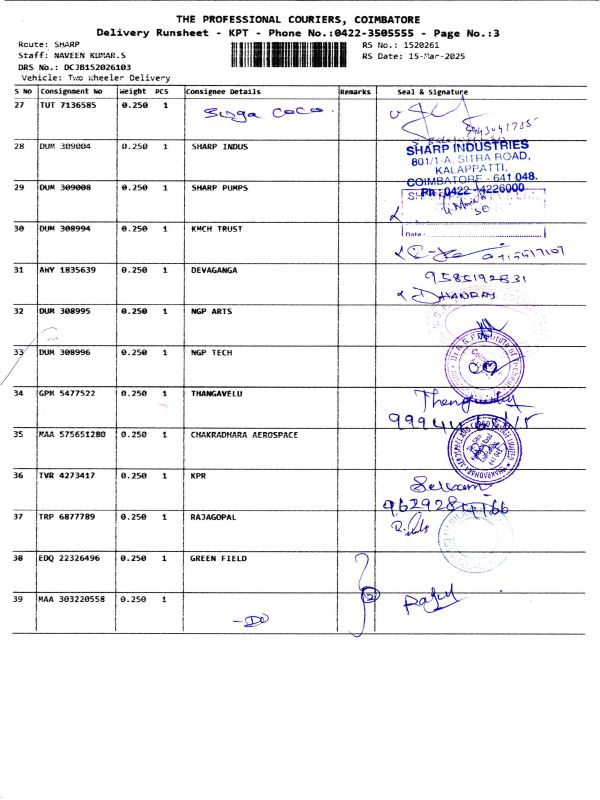 THE PROFESSIONAL COURIERS, COIMBATORE
Delivery Runsheet - KPT - Phone No.:0422-3505555 - Page No.:3
Route: SHARP
RS No.: 1520261
Staff: NAVEEN KUMAR.S
RS Date: 15-Mar-2025
DRS No.: DCJB152026103
Vehicle: Two Wheeler Delivery
S No Consignment No Weight PCS Consignee Details Remarks Seal & Signature
27 TUT 7136585 0.250 1
28 DUM 309004 0.250 1 SHARP INDUS
SHARP INDUSTRIES
801/1-A, SITRA ROAD,
KALAPPATTI,
COIMBATORE - 641 048.
PH : 0422 - 4226000
29 DUM 309008 0.250 1 SHARP PUMPS
30 DUM 308994 0.250 1 KMCH TRUST
Date :
31 AWY 1835639 0.250 1 DEVAGANGA
9585192831
DHANRAJ
32 DUM 308995 0.250 1 NGP ARTS
33 DUM 308996 0.250 1 NGP TECH
34 GPM 5477522 0.250 1 THANGAVELU
35 MAA 575651280 0.250 1 CHAKRADHARA AEROSPACE
36 TVR 4273417 0.250 1 KPR
Selvam
37 TRP 6877789 0.250 1 RAJAGOPAL
38 EDQ 22326496 0.250 1 GREEN FIELD
39 MAA 303220558 0.250 1
-Do
2